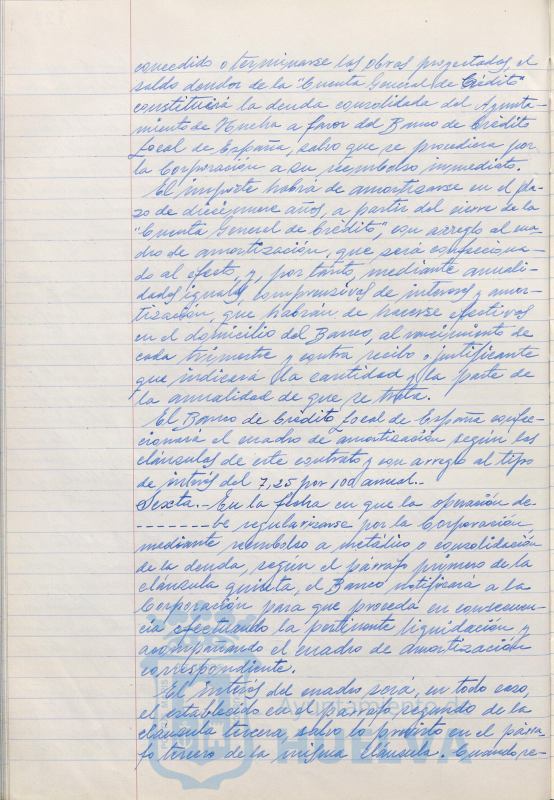 concedido o terminarse las obras proyectadas, el
saldo deudor de la "Cuenta General de Crédito"
constituirá la deuda consolidada del Ayunta-
miento de Huelva a favor del Banco de Crédito
Local de España, salvo que se procediera por
la Corporación a su reembolso inmediato.
El importe habrá de amortizarse en el pla-
zo de diecinueve años, a partir del cierre de la
"Cuenta General de Crédito", con arreglo al cua-
dro de amortización, que será confecciona-
do al efecto, y, por tanto, mediante anuali-
dades iguales, comprensivas de interes y amor-
tización, que habran de hacerse efectivas
en el domicilio del Banco, al vencimiento de
cada trimestre y contra recibo o justificante
que indicará la cantidad y la parte de
la anualidad de que se trata.
El Banco de Crédito Local de España confec-
cionará el cuadro de amortización según las
cláusulas de este contrato y con arreglo al tipo
de interés del 7,25 por 100 anual.-
Sexta.- En la fecha en que la operación de-
------- be regularizarse por la Corporación
mediante reembolso a metálico o consolidación
de la deuda, según el párrafo primero de la
cláusula quinta, el Banco notificará a la
Corporación para que proceda en consecuen-
cia efectuando la pertinente liquidación y
acompañando el cuadro de amortización
correspondiente.
El interés del cuadro será, en todo caso,
el establecido en el párrafo segundo de la
cláusula tercera, salvo lo previsto en el párra-
fo tercero de la misma cláusula. Cuando re-
Ayuntamiento
HUELVA